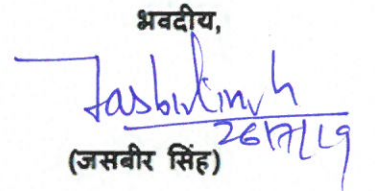 भवदीय,
Jasbir Singh
26/7/19
(जसबीर सिंह)